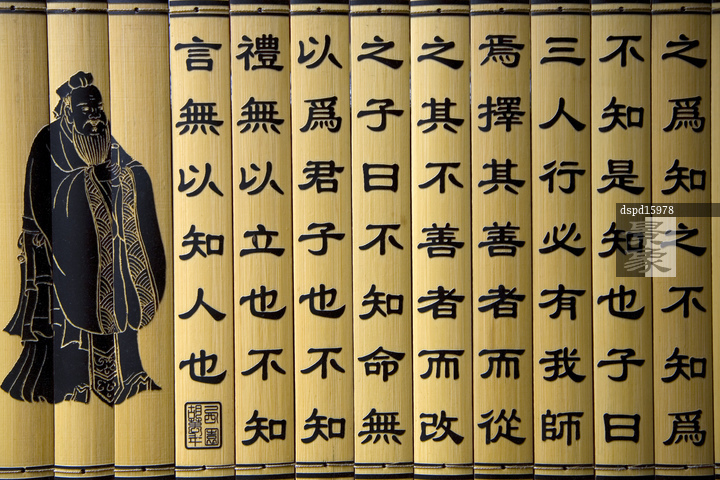 之爲知之不知爲
不知是知也子曰
三人行必有我師
焉擇其善者而從
之其不善者而改
之子曰不知命無
以爲君子也不知
禮無以立也不知
言無以知人也
dspd15978